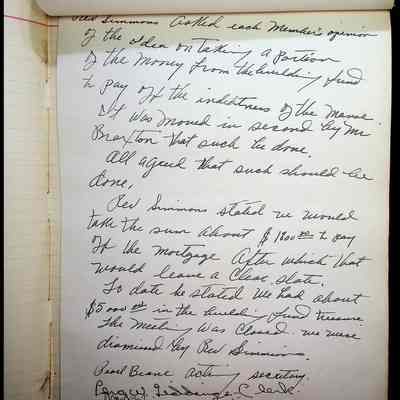 Rev Simmons asked each Member's opinion
of the idea on taking a portion
of the money from the building fund
to pay off the indebtness of the Manse.
It was moved in second by Mr
Braxton that such be done.
All agreed that such should be
done.
Rev Simmons stated we would
take the sum about $1800.00 to pay
off the mortgage after which that
would leave a clear slate.
To date he stated we had about
$5000.00 in the building fund treasure
The Meeting was closed. we were
dismissed by Rev Simmons.
Pearl Beane acting secretary.
Clerk.